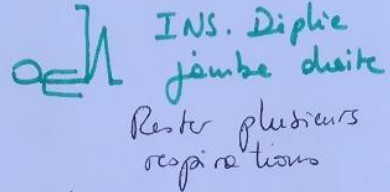 INS. Diplie
jambe droite
Rester plusieurs
respirations